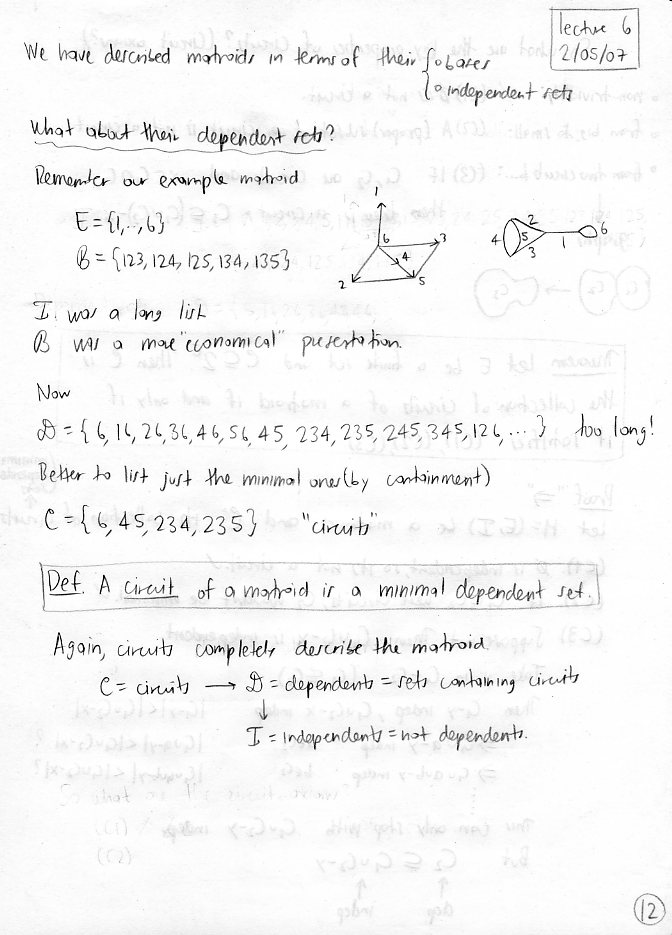 lecture 6
2/05/07
We have described matroids in terms of their { ∘ bases
∘ independent sets
What about their dependent sets?
Remember our example matroid
E = {1,..,6}
B = {123, 124, 125, 134, 135}
1
6
3
4
2
5
2
4
5
3
1
6
I was a long list
B was a more "economical" presentation.
Now
D = {6, 16, 26, 36, 46, 56, 45, 234, 235, 245, 345, 126, ...} too long!
Better to list just the minimal ones (by containment)
C = {6, 45, 234, 235} "circuits"
Def. A circuit of a matroid is a minimal dependent set.
Again, circuits completely describe the matroid.
C = circuits → D = dependents = sets containing circuits
↓
I = independents = not dependents.
12